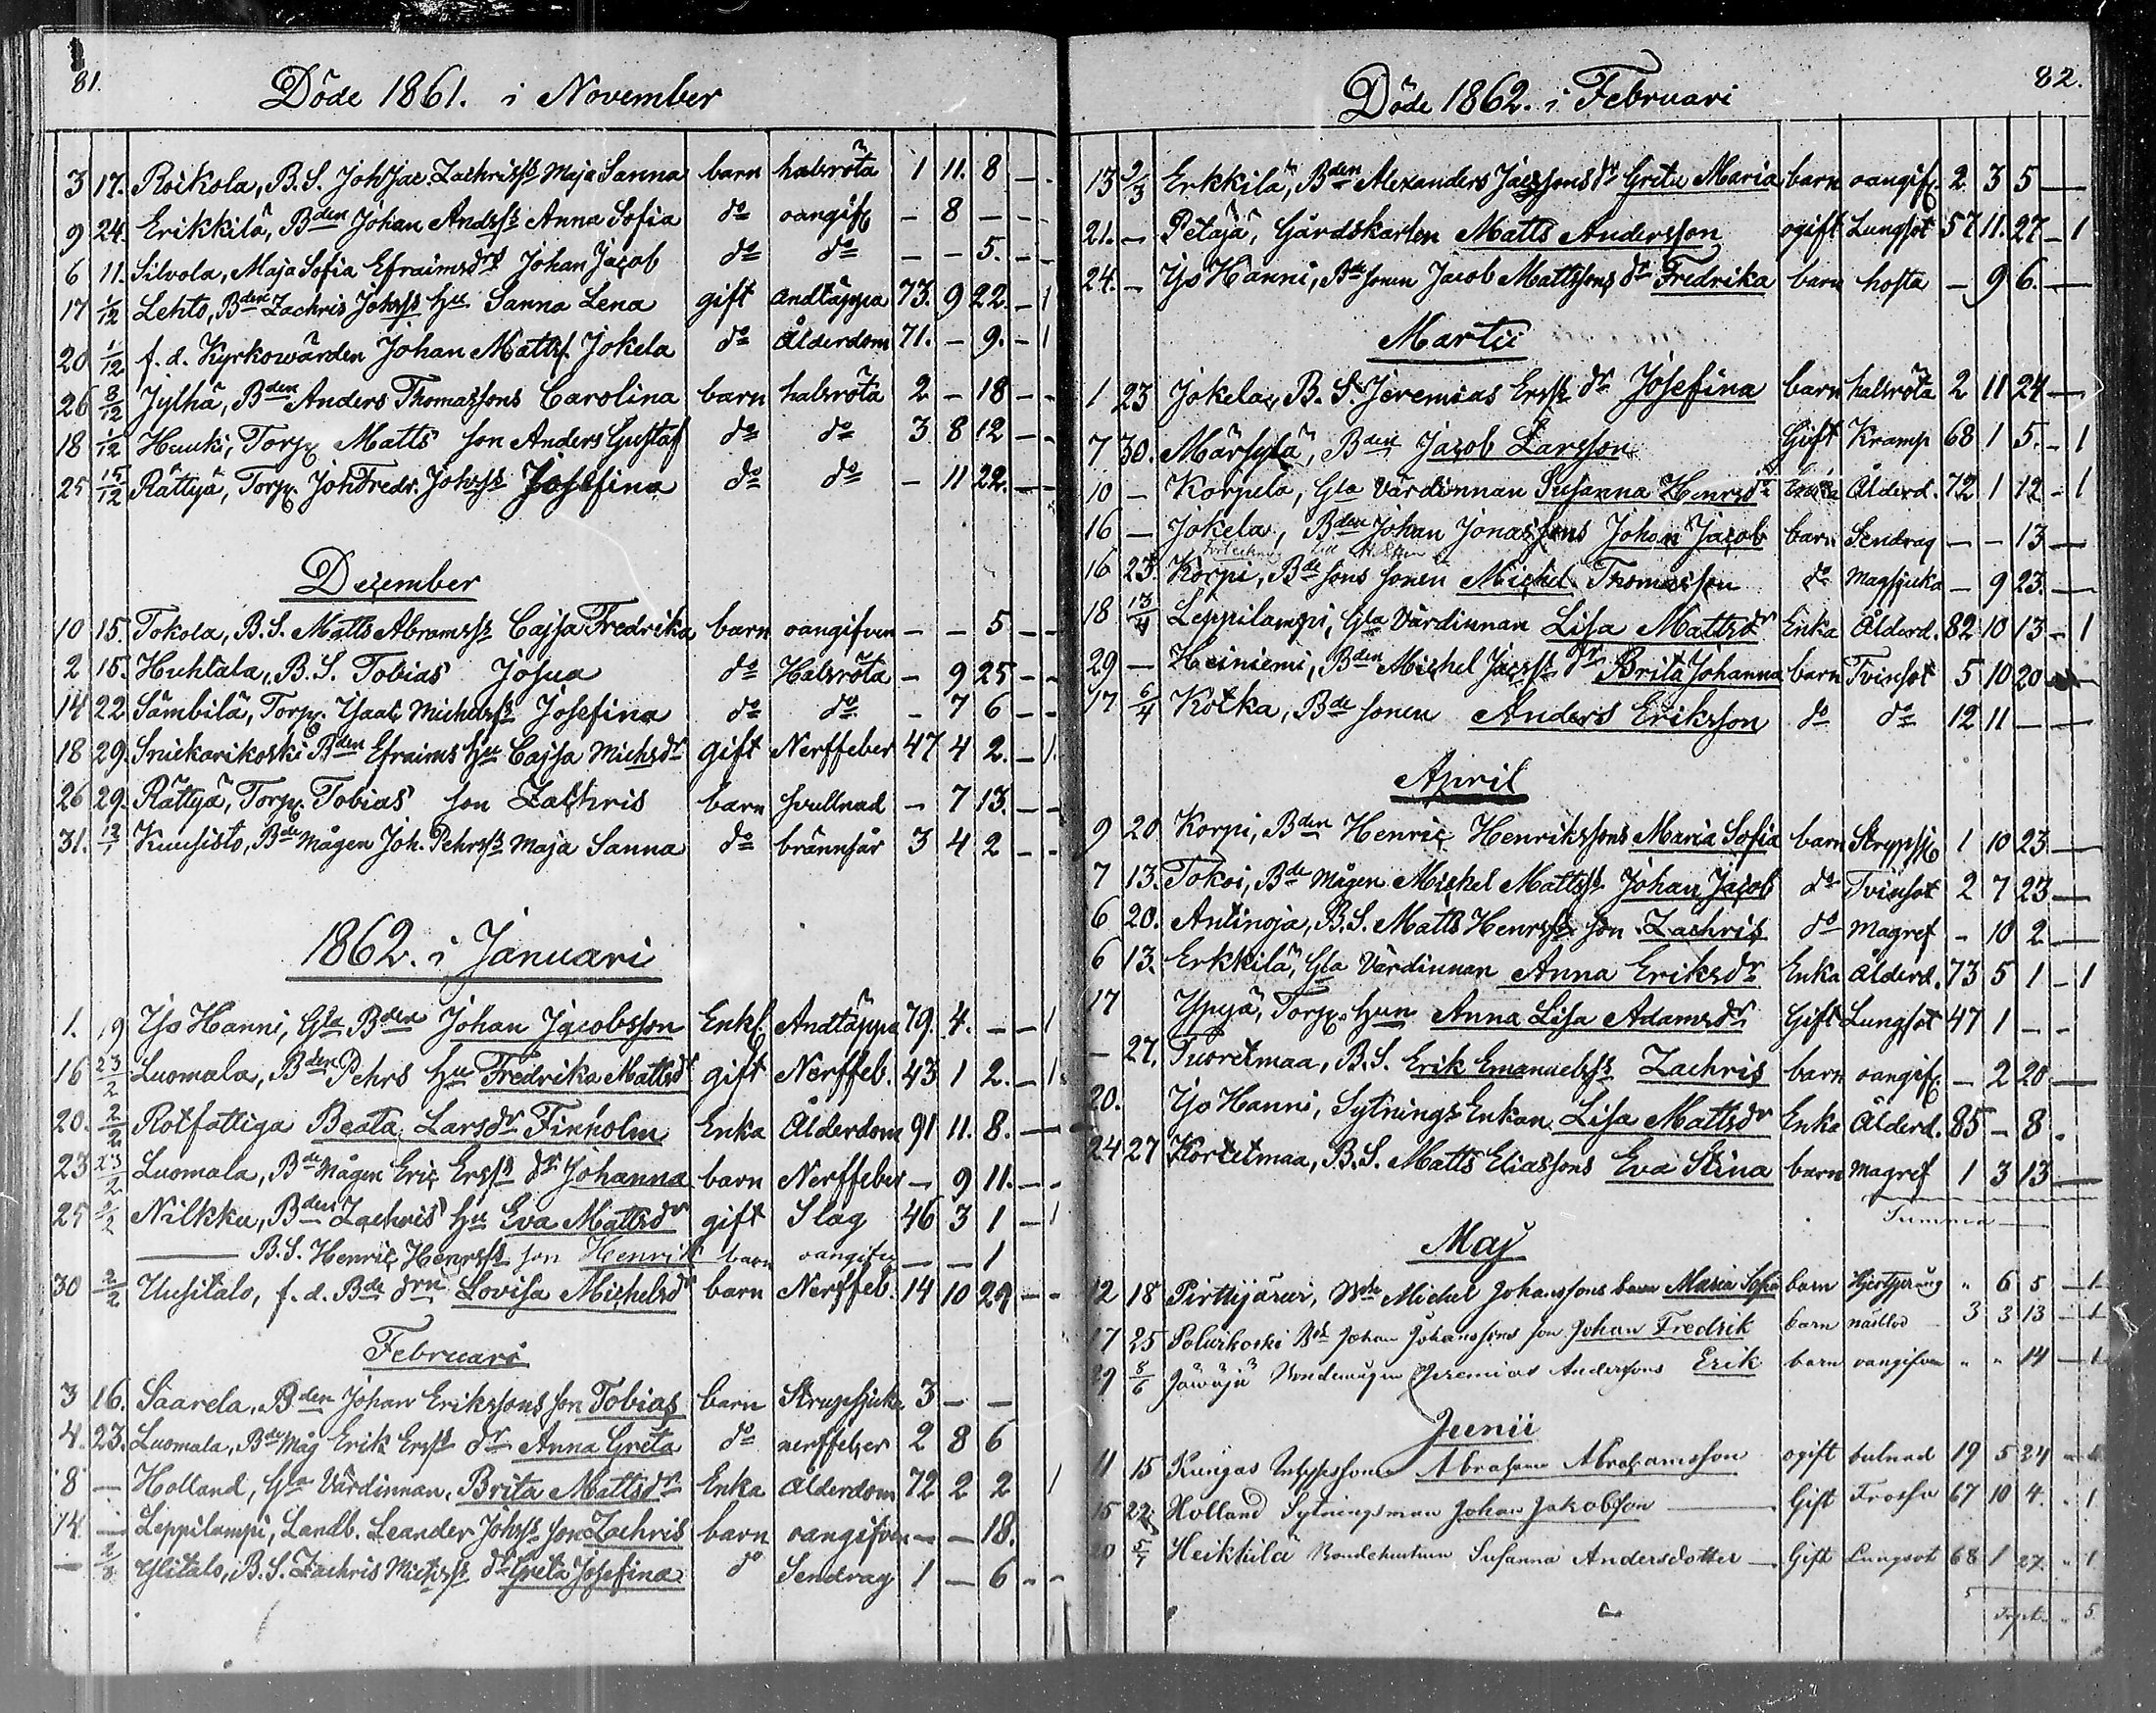 81.
Döde 1861. i November
3 17. Roikola, B.S. Joh Jac. Zachrisss Maja Sanna barn halsröta 1 11. 8 - -
9 24. Erikkilä, Bden Johan Andrss Anna Sofia do oangif - 8 - - -
6 11. Silvola, Maja Sofia Efraimsdrs Johan Jacob do do - - 5. - -
17 1/12 Lehto, Bden Zachris Johss Hu Sanna Lena gift andtäppa 73. 9 22. - 1
20 1/12 f.d. Kyrkowärden Johan Mattss. Jokela do Ålderdom 71. - 9. - 1
26 8/12 Jylhä, Bden Anders Thomassons Carolina barn halsröta 2 - 18 - -
18 1/12 Hauki, Torp Matts son Anders Gustaf do do 3 8 12 - -
25 15/12 Rättyä, Torp. Joh Fredr. Johss Josefina do do - 11 22. - -
December
10 15. Tokola, B.S. Matts Abramss Cajsa Fredrika barn oangifven - - 5 - -
2 15. Huhtala, B.S. Tobias Josua do Halsröta - 9 25 - -
14 22 Sämbilä, Torp. Isaac Michelss Josefina do do - 7 6 - -
18 29. Snickarikoski Bden Efraims Hu Cajsa Michsdr gift Nerffeber 47 4 2. - 1.
26 29. Rättyä, Torp. Tobias son Zachris barn svullnad - 7 13. - -
31. 12/1 Kuusisto, Bde Mågen Joh. Pehrss Maja Sanna do brännsår 3 4 2 - -
1862. i Januari
1. 19 Yso Hanni, Gla Bden Johan Jacobsson Enkl. Andtäppa 79. 4. - - 1
16 23/2 Luomala, Bden Pehrs Hu Fredrika Mattsdr gift Nerffeb. 43 1 2. - 1
20. 2/2 Rotfattiga Beata Larsdr Finholm Enka Ålderdom 91 11. 8. -
23 23/2 Luomala, Bde Mågen Eric Ersss dr Johanna barn Nerffeber - 9 11. - -
25 2/2 Nilkku, Bden Zachris' Hu Eva Mattsdr gift Slag 46 3 1 - 1
— B.S. Henric Henrss son Henrik barn oangifv - - 1
30 2/2 Uusitalo, f.d. Bde drn Lovisa Michelsdr barn Nerffeb. 14 10 29 - -
Februari
3 16. Saarela, Bden Johan Erikssons son Tobias barn Strupsjuka 3 - -
4. 23. Luomala, Bde Måg Erik Ersss dr Anna Greta do nerffeber 2 8 6
8 - Holland, Gla Värdinnan, Brita Mattsdr Enka Ålderdom 72 2 2 1
14. - Leppilampi, Landb. Leander Johss son Zachris barn oangifven - - 18.
- 2/3 Ylitalo, B.S. Zachris Michss dr Greta Josefina do Sendrag 1 - 6 - -
82.
Döde 1862. i Februari
13 2/3 Erkkilä, Bden Alexanders Jacssons dr Greta Maria barn oangif. 2 3 5 -
21. - Petäjä, Gårdskarlen Matts Andersson ogift Lungsot 57 11. 27 - 1
24. - Yso Hanni, Bde sonen Jacob Mattssons dr Fredrika barn hosta - 9 6. -
Martii
1 23 Jokela, B.S. Jeremias Ersss dr Josefina barn halsröta 2 11 24 -
7 30. Märsylä, Bden Jacob Larsson Gift Kramp 68 1 5. - 1
10 - Korpela, Gla Värdinnan Susanna Henrsdr Enka Ålderd. 72 1 12 - 1
16 - Jokela, Bden Johan Jonassons Johan Jacob barn Sendrag - - 13 -
16 23. Korpi, Bde sons sonen Michel Thomasson do Magsjuka - 9 23. -
18 13/4 Leppilampi, Gla Värdinnan Lisa Mattsdr Enka Ålderd. 82 10 13 - 1
29 - Heiniemi, Bden Michel Jacss dr Brita Johanna barn Tvinsot 5 10 20 -
17 6/4 Kotka, Bde sonen Anders Eriksson do do 12 11 - -
April
9 20 Korpi, Bden Henric Henrikssons Maria Sofia barn Strypsj 1 10 23 -
7 13. Tokoi, Bde Mågen Mickel Mattss Johan Jacob do Tvinsot 2 7 23 -
6 20. Antinoja, B.S. Matts Henrss son Zachris do Magref - 10 2 -
6 13. Erkkilä, Gla Värdinnan Anna Eriksdr Enka Ålderd. 73 5 1 - 1
17 Yppyä, Torp. Hun Anna Lisa Adamsdr Gift Lungsot 47 1 - -
- 27. Tuoretmaa, B.S. Erik Emanuelss Zachris barn oangif. - 2 20 -
20. Yso Hanni, Sytnings Enkan Lisa Mattsdr Enka Ålderd. 85 - 8.
24 27 Kortetmaa, B.S. Matts Eliassons Eva Stina barn Magref 1 3 13 -
Summa -
Maj
12 18 Pirttijärvi, Michel Johanssons barn Maria Sofia barn " 6 5 - 1
17 25 Polusikoski Johan Johanssons son Johan Fredrik barn 3 3 13 - 1
29 8/6 Bondemågen Jeremias Anderssons Erik barn oangifven " " 14 - 1
Junii
11 15 Kungas Abraham Abrahamsson ogift 19 5 24
15 22 Holland Sytningsman Johan Jakobsson Gift 67 10 4. 1
5/7 Heikkilä Bondehustrun Susanna Andersdotter Gift Lungsot 68 1 27. 1
5.